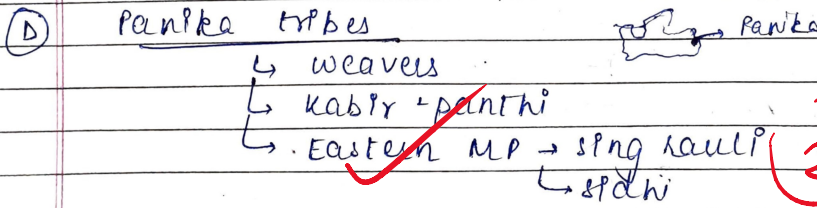 D Panika tribes → Panika
↳ weavers
↳ Kabir-panthi
↳ Eastern MP → singrauli 2
↳ sidhi